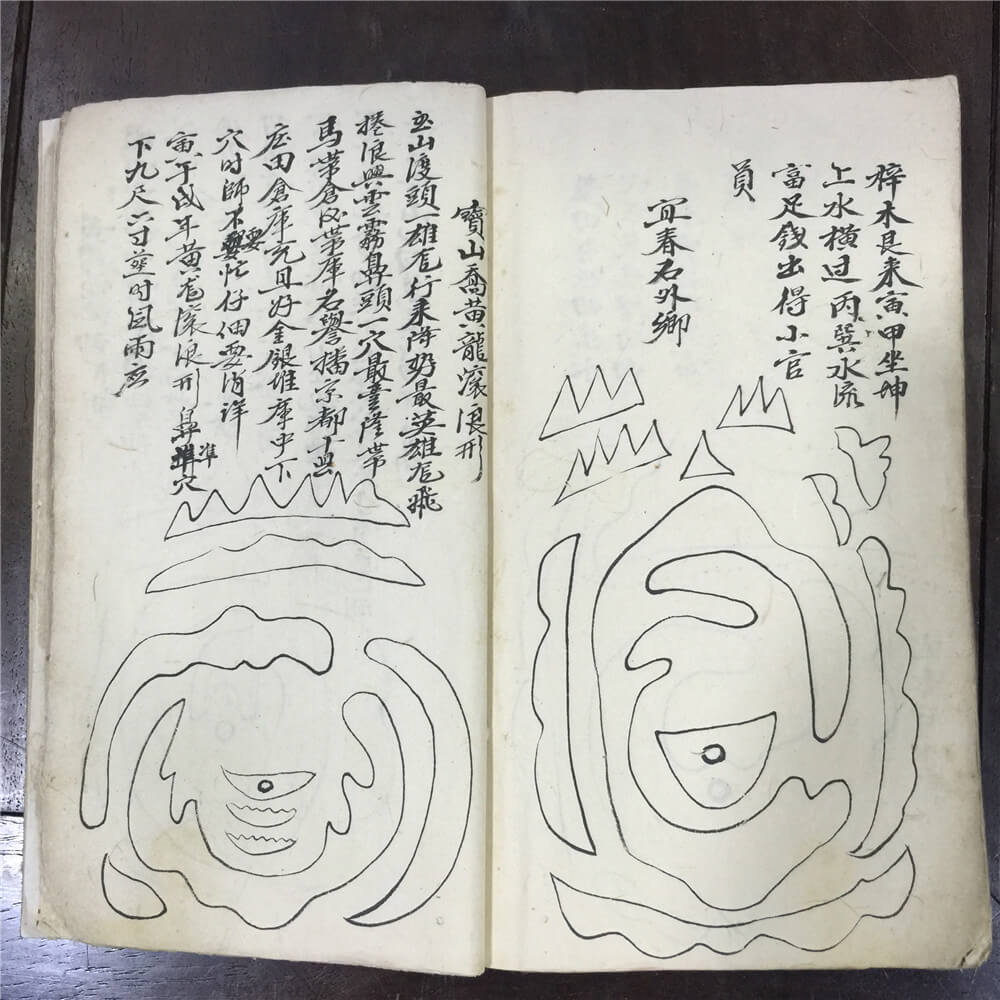 梓木艮来寅甲坐坤
上水横过丙巽水流
富足錢出得小官
員
宜春名外鄉
寶山喬黄龍滚浪形
玉山渡頭一雄龙行来最英雄龙飛
捲浪興雲霧鼻頭一穴最豊隆带
馬带倉又带庫名譽播京都丁
庄田倉庫充且好金銀堆庫中下
穴时師不要忙仔細要消详
寅午戌年黄龙滚浪形 鼻準穴
下九尺六寸葬时风雨应